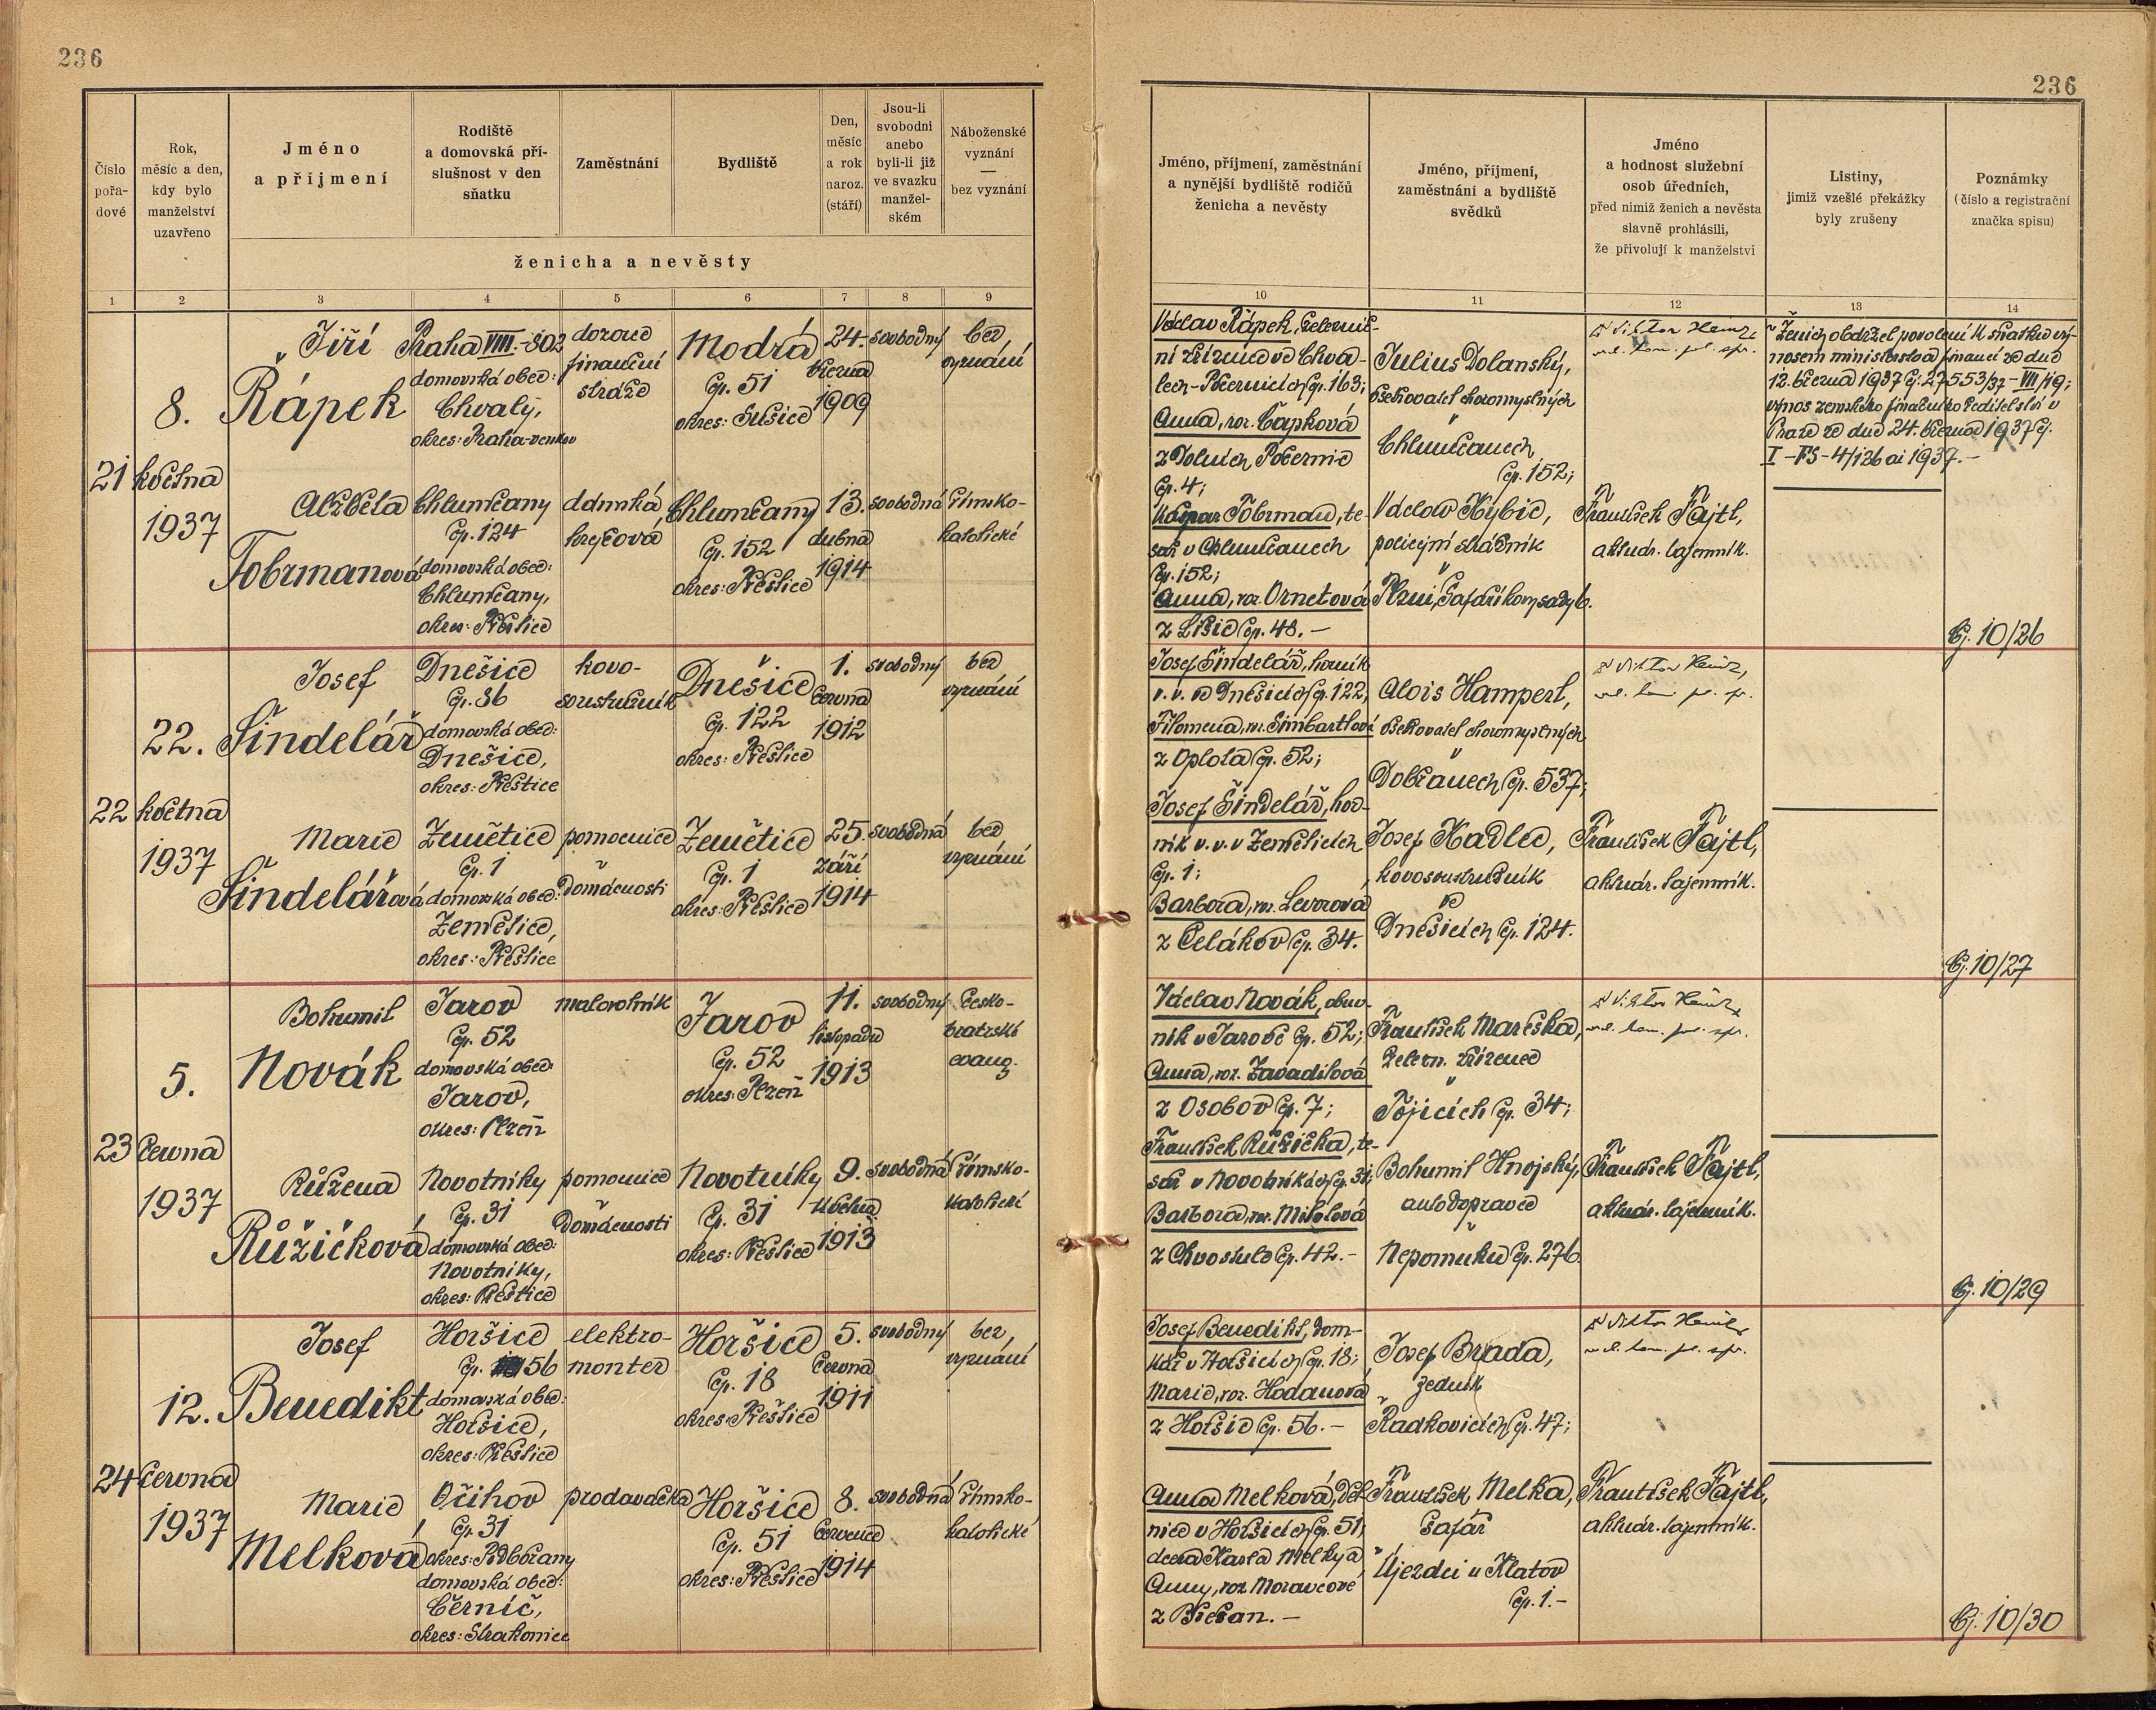 236
236
Číslo pořadové
Rok, měsíc a den, kdy bylo manželství uzavřeno
Jméno a příjmení
Rodiště a domovská příslušnost v den sňatku
Zaměstnání
Bydliště
Den, měsíc a rok naroz. (stáří)
Jsou-li svobodni anebo byli-li již ve svazku manželském
Náboženské vyznání — bez vyznání
ženicha a nevěsty
Jméno, příjmení, zaměstnání a nynější bydliště rodičů ženicha a nevěsty
Jméno, příjmení, zaměstnání a bydliště svědků
Jméno a hodnost služební osob úředních, před nimiž ženich a nevěsta slavně prohlásili, že přivolují k manželství
Listiny, jimiž vzešlé překážky byly zrušeny
Poznámky (číslo a registrační značka spisu)
1 2 3 4 5 6 7 8 9 10 11 12 13 14
21
8.
května
1937
Jiří
Řápek
Praha VIII.-802
domovská obec:
Chvaly,
okres: Praha-venkov
dozorce
finanční
stráže
Modrá
čp. 51
okres: Sušice
24.
března
1909
svobodný
bez
vyznání
Alžběta
Tobrmanová
Chlumčany
čp. 124
domovská obec:
Chlumčany,
okres: Přeštice
dámská
krejčová
Chlumčany
čp. 152
okres: Přeštice
13.
dubna
1914
svobodná
římsko-
katolické
Václav Řápek, železnič-
ní zřízenec ve Chva-
lech-Počernicích čp. 163;
Anna, roz. Čapková
z Dolních Počernic
čp. 4;
Kašpar Tobrman, te-
sař v Chlumčanech
čp. 152;
Anna, roz. Ornetová
z Lišic čp. 48.-
Julius Dolanský,
ošetřovatel choromyslných
v
Chlumčanech
čp. 152;
Václav Kybic,
policejní strážník
v
Plzni, Šafaříkovy sady 6.
František Fajtl,
aktuár. tajemník.
Ženich obdržel povolení k sňatku vý-
nosem ministerstva financí ze dne
12. března 1937 čj. 27553/37-VII/19;
výnos zemského finančního ředitelství v
Praze ze dne 24. března 1937 čj.
I-FS-4/126 ai 1937.-
Čj. 10/26
22
22.
května
1937
Josef
Šindelář
Dnešice
čp. 36
domovská obec:
Dnešice,
okres: Přeštice
kovo-
soustružník
Dnešice
čp. 122
okres: Přeštice
1.
června
1912
svobodný
bez
vyznání
Marie
Šindelářová
Zemětice
čp. 1
domovská obec:
Zemětice,
okres: Přeštice
pomocnice
v
domácnosti
Zemětice
čp. 1
okres: Přeštice
25.
září
1914
svobodná
bez
vyznání
Josef Šindelář, horník
v. v. ve Dnešicích čp. 122,
Filomena, roz. Šimbartlová
z Oplota čp. 52;
Josef Šindelář, hor-
ník v. v. v Zeměticích
čp. 1;
Barbora, roz. Levorová
z Čelákov čp. 34.
Alois Hamperl,
ošetřovatel choromyslných
v
Dobřanech čp. 537;
Josef Kadlec,
kovosoustružník
ve
Dnešicích čp. 124.
František Fajtl,
aktuár. tajemník.
Čj. 10/27
23
5.
června
1937
Bohumil
Novák
Jarov
čp. 52
domovská obec:
Jarov,
okres: Plzeň
malorolník
Jarov
čp. 52
okres: Plzeň
11.
listopadu
1913
svobodný
česko-
bratrské
evang.
Růžena
Růžičková
Novotníky
čp. 31
domovská obec:
Novotníky,
okres: Přeštice
pomocnice
v
domácnosti
Novotníky
čp. 31
okres: Přeštice
9.
května
1913
svobodná
římsko-
katolické
Václav Novák, obuv-
ník v Jarově čp. 52;
Anna, roz. Zavadilová
z Osobov čp. 7;
František Růžička, te-
sař v Novotníkách čp. 31;
Barbora, roz.
z Chvostule čp. 42.-
František Mareška,
železn. zřízenec
v
Tojicích čp. 34;
Bohumil Hnojský,
autodopravce
v
Nepomuku čp. 276.
František Fajtl,
aktuár. tajemník.
Čj. 10/29
24
12.
června
1937
Josef
Benedikt
Horšice
čp. 56
domovská obec:
Horšice,
okres: Přeštice
elektro-
montér
Horšice
čp. 18
okres: Přeštice
5.
června
1911
svobodný
bez
vyznání
Marie
Melková
Očihov
čp. 31
okres: Podbořany
domovská obec:
Černíč,
okres: Strakonice
prodavačka
Horšice
čp. 51
okres: Přeštice
8.
července
1914
svobodná
římsko-
katolické
Josef Benedikt, dom-
kář v Horšicích čp. 18;
Marie, roz. Hodanová
z Horšic čp. 56.-
Anna Melková, děl-
nice v Horšicích čp. 51,
dcera Karla Melky a
Anny, roz. Moravcové
z Břežan.-
Josef Brada,
zedník
v
Radkovicích čp. 47;
František Melka,
šafář
v
Újezdci u Klatov
čp. 1.-
František Fajtl,
aktuár. tajemník.
Čj. 10/30